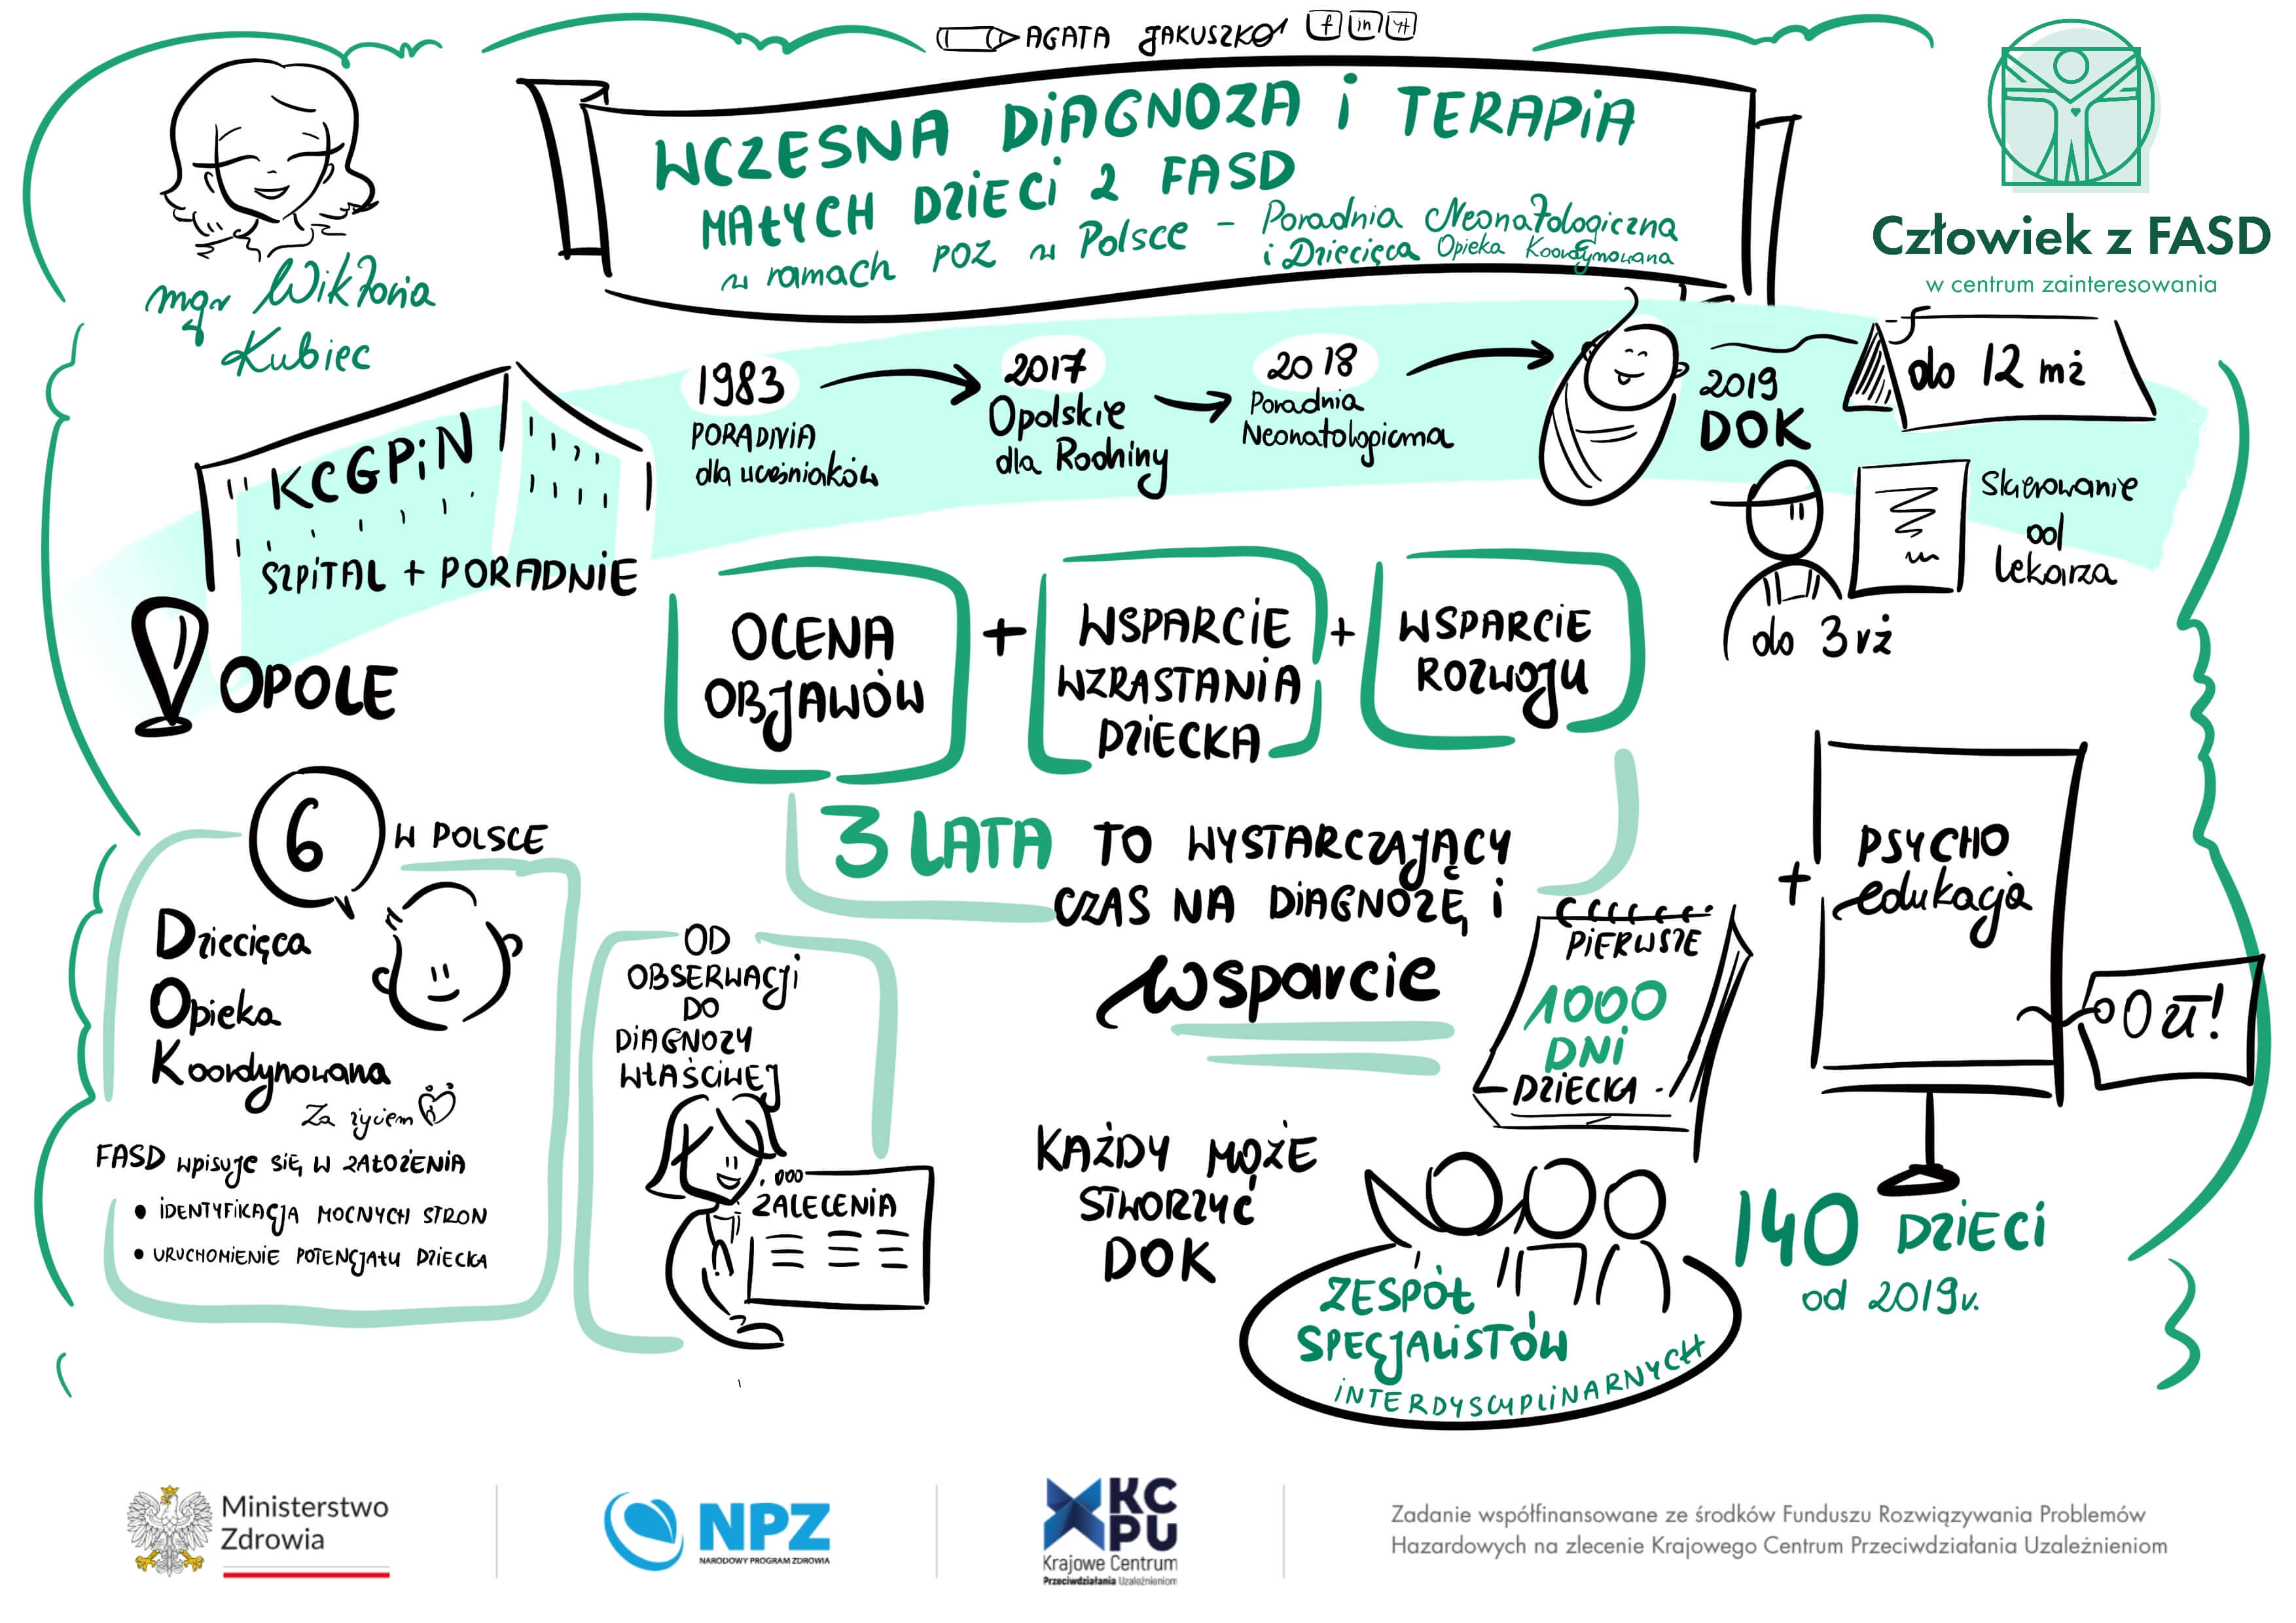 AGATA JAKUSZKO f in yt
WCZESNA DIAGNOZA I TERAPIA
MAŁYCH DZIECI Z FASD
w ramach POZ w Polsce - Poradnia Neonatologiczna
i Dziecięca Opieka Koordynowana
Człowiek z FASD
w centrum zainteresowania
mgr Wiktoria
Kubiec
KCGPiN
SZPITAL + PORADNIE
OPOLE
1983
PORADNIA
dla wcześniaków
2017
Opolskie
dla Rodziny
2018
Poradnia
Neonatologiczna
2019
DOK
do 12 mż
Skierowanie
od
lekarza
do 3 rż
OCENA
OBJAWÓW
+
WSPARCIE
WZRASTANIA
DZIECKA
+
WSPARCIE
ROZWOJU
3 LATA TO WYSTARCZAJĄCY
CZAS NA DIAGNOZĘ I
wsparcie
PIERWSZE
1000
DNI
DZIECKA
+
PSYCHO
edukacja
0 zł!
6
W POLSCE
Dziecięca
Opieka
Koordynowana
Za życiem
FASD wpisuje SIĘ W ZAŁOŻENIA
• IDENTYFIKACJA MOCNYCH STRON
• URUCHOMIENIE POTENCJAŁU DZIECKA
OD
OBSERWACJI
DO
DIAGNOZY
WŁAŚCIWEJ
ZALECENIA
KAŻDY MOŻE
STWORZYĆ
DOK
ZESPÓŁ
SPECJALISTÓW
INTERDYSCYPLINARNYCH
140 DZIECI
od 2019r.
Ministerstwo
Zdrowia
NPZ
NARODOWY PROGRAM ZDROWIA
KC
PU
Krajowe Centrum
Przeciwdziałania Uzależnieniom
Zadanie współfinansowane ze środków Funduszu Rozwiązywania Problemów
Hazardowych na zlecenie Krajowego Centrum Przeciwdziałania Uzależnieniom